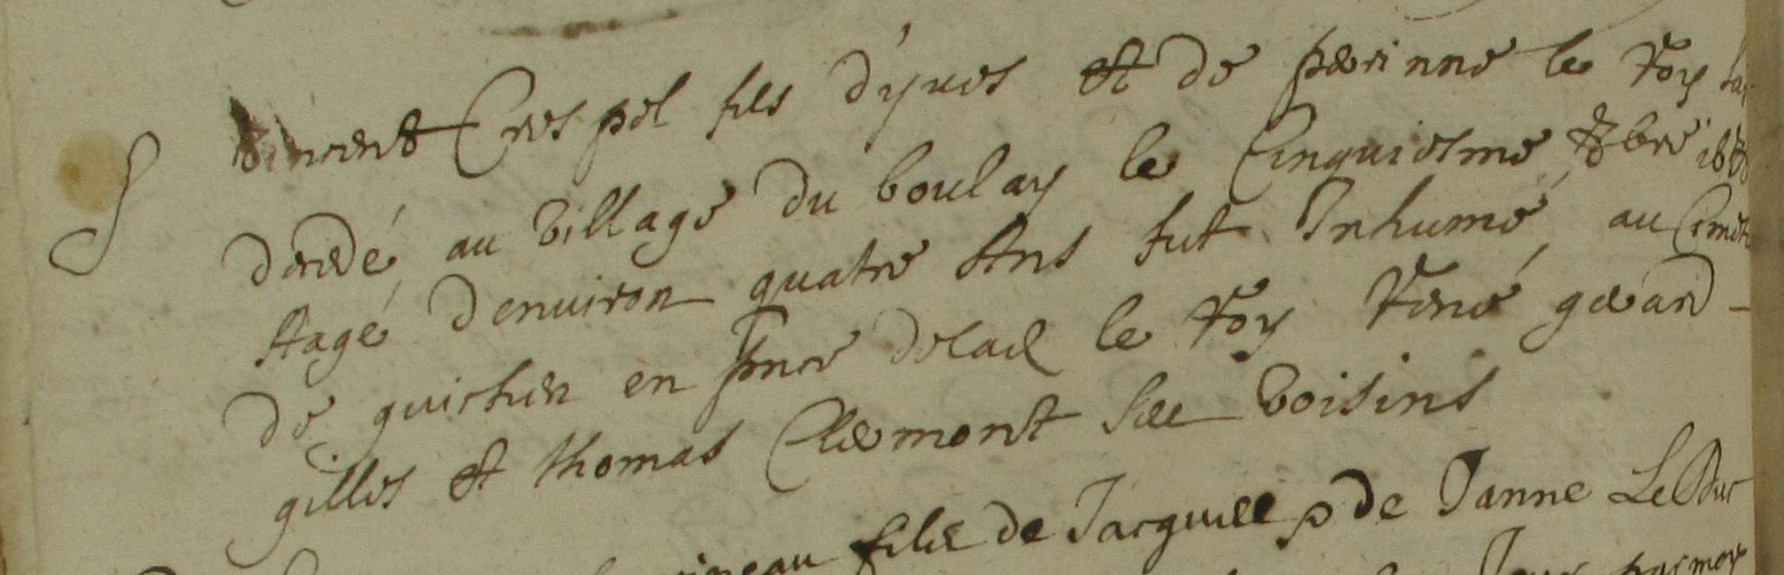 S vincent Crespel fils d'yues et de perinne le Roy
decedé au village du boulay le Cinquiesme 8bre
Aagé denuiron quatre Ans fut Inhumé au
de guichen en pnce le Roy René gerard
gilles et thomas Clermont ses voisins
fille de Jacques de Janne LeDuc
par moy